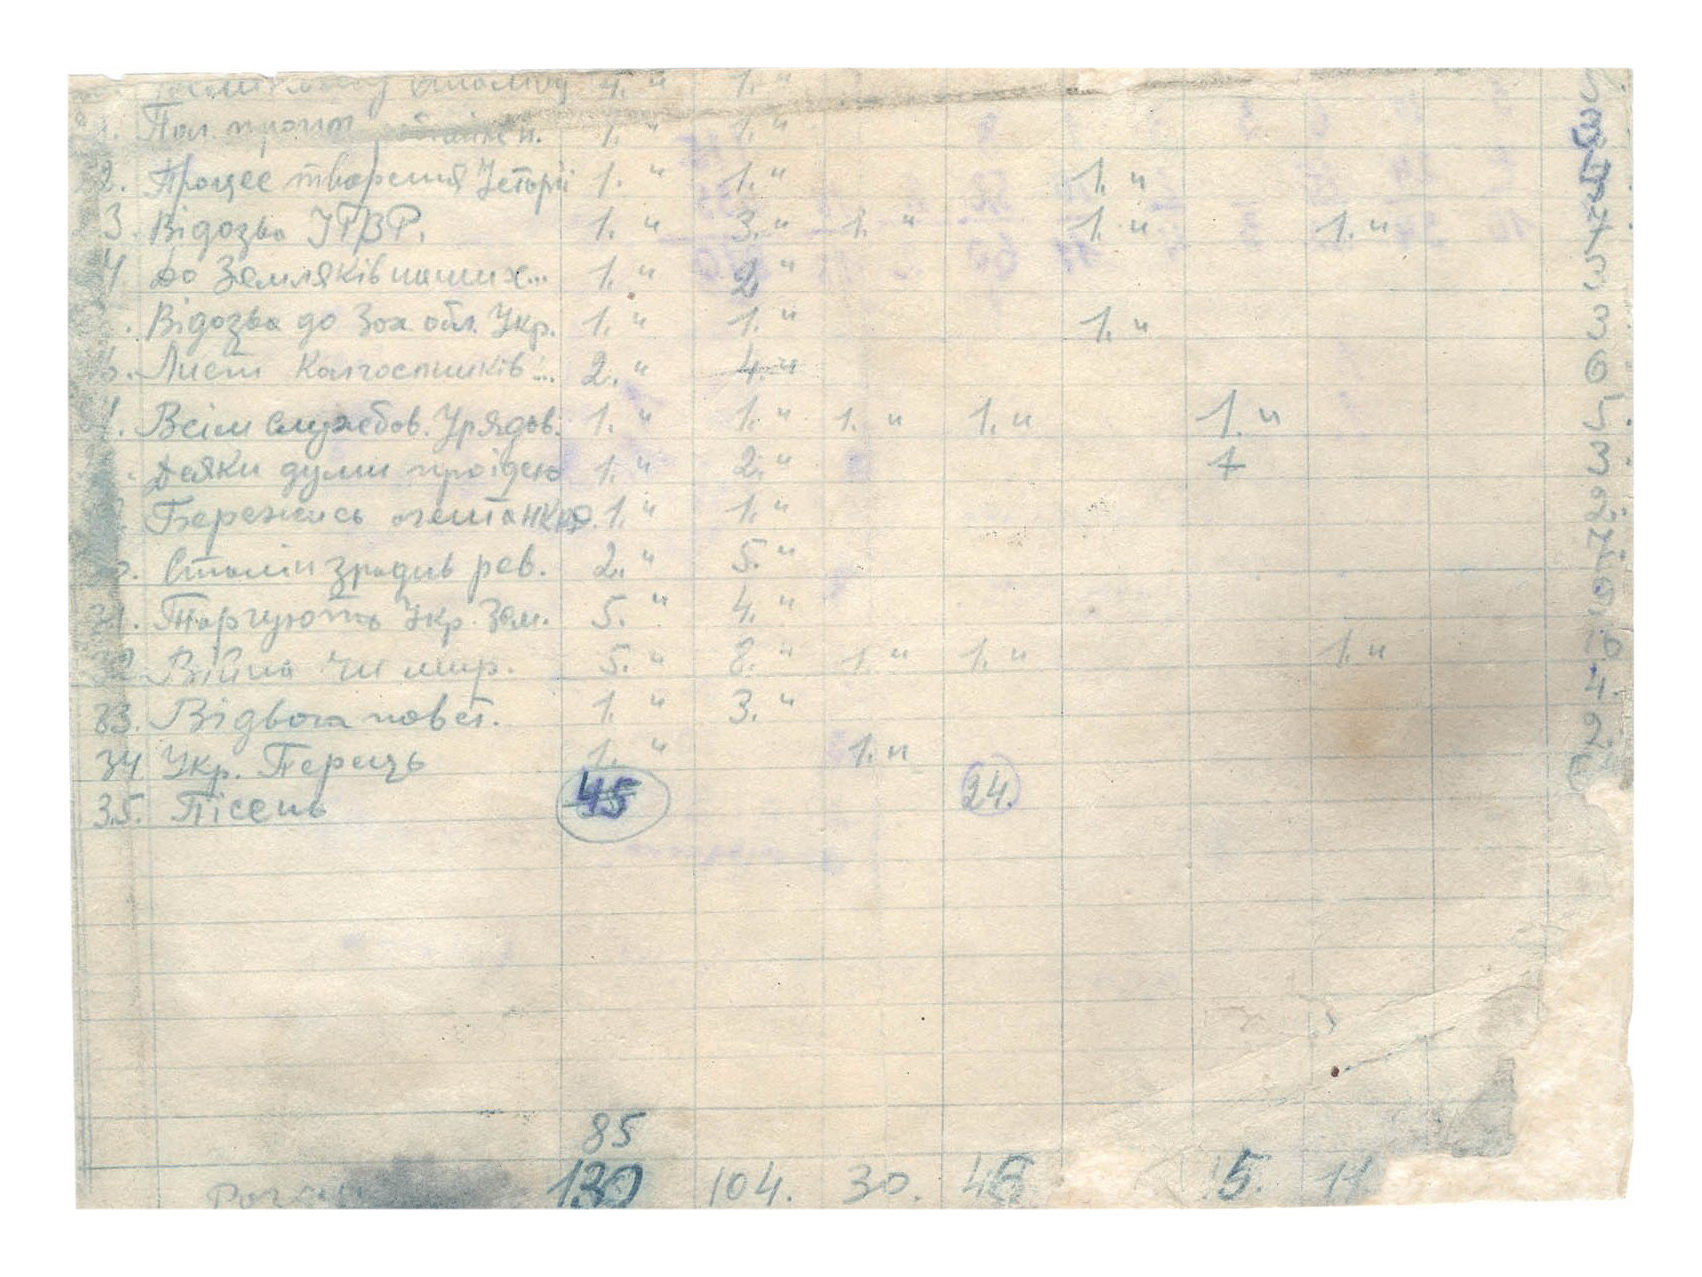 1. " 1. "
1. Пол. 1. " 1. " 3
2. Процес творення Історії 1. " 1. " 1. " 3.
3. Відозва УГВР. 1. " 3. " 1. " 1. " 1. " 7.
4 До Земляків наших... 1. " 2 " 3
. Відозва до Зах обл. Укр. 1. " 1. " 1. " 3
6. Лист Колгоспників... 2. " 4. " 6
Всім службов. Урядов. 1. " 1. " 1. " 1. " 1. " 5.
Деяки думи про ідею 1. " 2. " 1 3.
Бережись 1. " 1. " 2.
Сталін зрадив рев. 2. " 5. " 7.
31. Торгують Укр. Зем. 5. " 4. " 9
32 Війна чи мир. 5. " 8. " 1. " 1. " 1. " 16
33. Відвага повст. 1. " 3. " 4.
34 Укр. Перець 1. " 1. " 2.
35. Пісень 45 24.
85
130 104. 30. 5. 11